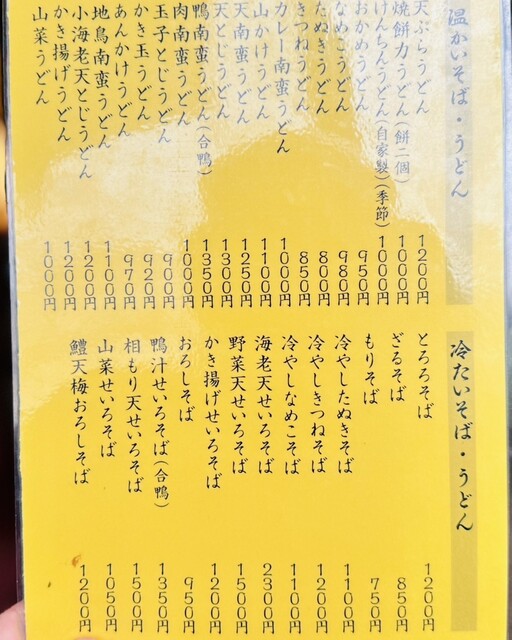 温かいそば・うどん
天ぷらうどん 1200円
焼餅力うどん(餅二個) 1000円
けんちんうどん(自家製)(季節) 1000円
おかめうどん 950円
なめこうどん 980円
たぬきうどん 800円
きつねうどん 850円
カレー南蛮うどん 1000円
山かけうどん 1100円
天南蛮うどん 1250円
天とじうどん 1300円
鴨南蛮うどん(合鴨) 1350円
肉南蛮うどん 1000円
玉子とじうどん 900円
かき玉うどん 920円
あんかけうどん 970円
地鳥南蛮うどん 1100円
小海老天とじうどん 1200円
かき揚げうどん 1200円
山菜うどん 1000円
冷たいそば・うどん
とろろそば 1200円
ざるそば 850円
もりそば 750円
冷やしたぬきそば 1100円
冷やしきつねそば 1200円
冷やしなめこそば 1100円
海老天せいろそば 2300円
野菜天せいろそば 1500円
かき揚げせいろそば 1200円
おろしそば 950円
鴨汁せいろそば(合鴨) 1350円
相もり天せいろそば 1500円
山菜せいろそば 1050円
鱧天梅おろしそば 1200円